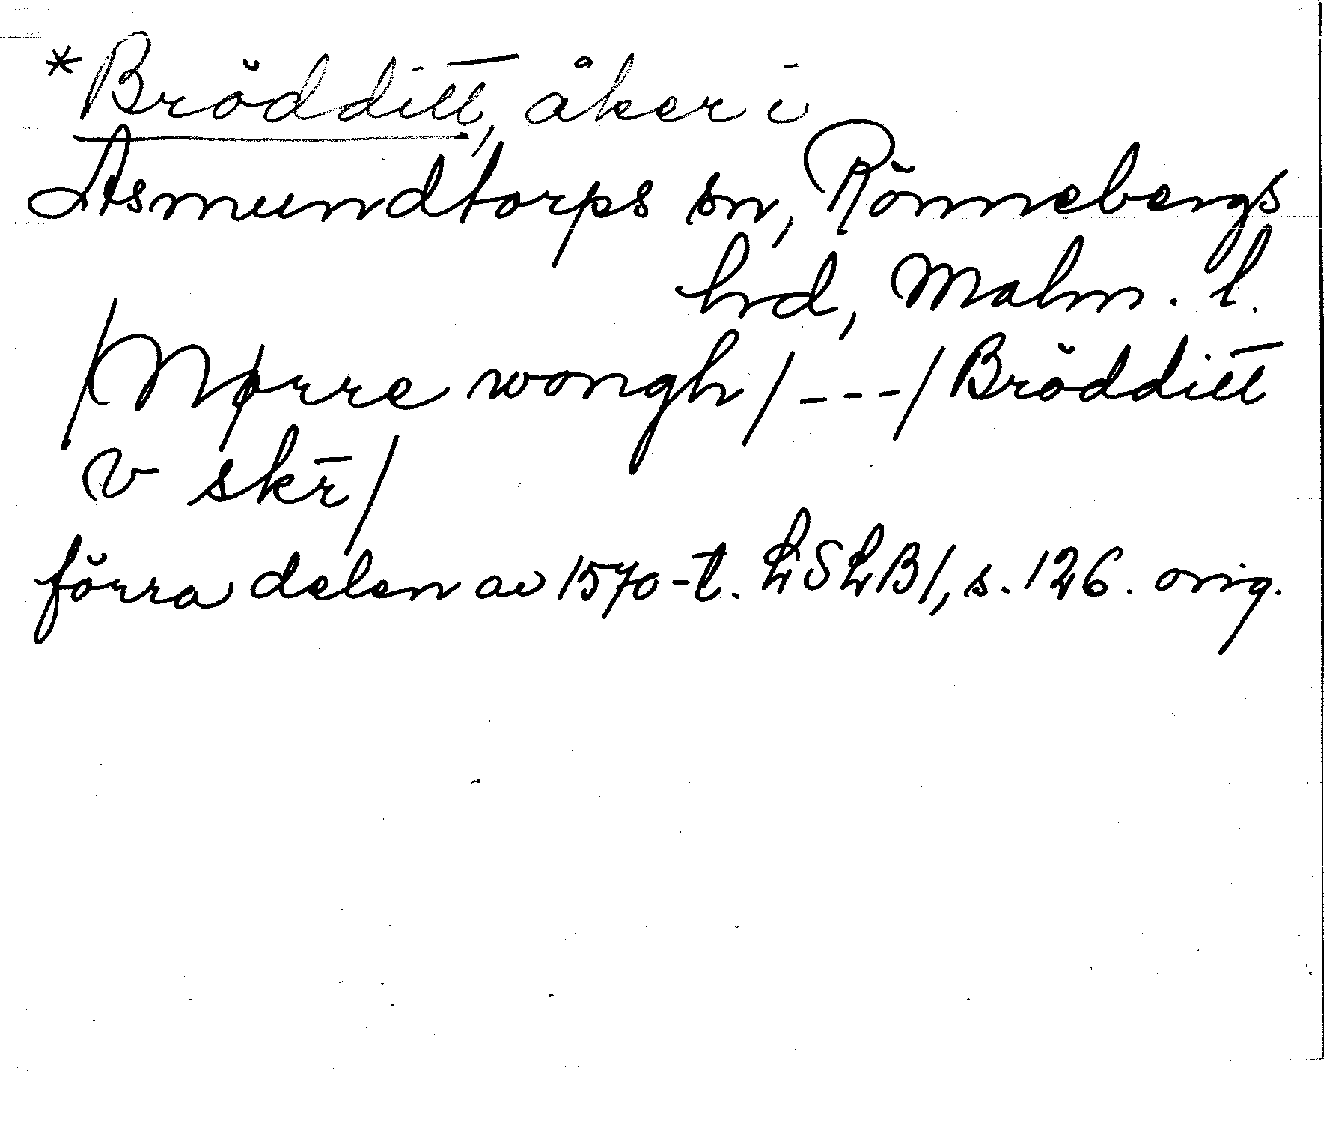 *Brödditt, åker i
Asmundtorps sn, Rönnebergs
hrd, Malm. l.
/Nørre wongh/---/Brödditt
v skr̄/
förra delen av 1570-t. LSLB1, s. 126. orig.